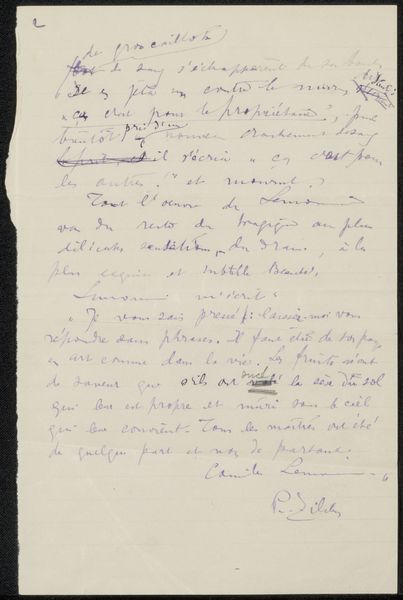 2
de gros caillots
de sang s'échappèrent de sa bouche
il en jeta un contre le mur
"ça c'est pour le propriétaire", puis
bientôt pris d'un nouveau crachement de sang
il s'écria "ça c'est pour
les autres!" et mourut.
Tout l'oeuvre de Lemonnier
va du reste du tragique au plus
délicates, du drame, à la
plus exquise et subtile Beauté.
Lemonnier m'écrit "
"Je vous sais pressé; laissez-moi vous
répondre sans phrases. Il faut être de son pays
en art comme dans la vie. Les fruits n'ont
de saveur que s'ils ont sucé la sève du sol
qui leur est propre et mûri sous le ciel
qui leur convient. Tous les maîtres ont été
de quelque part et non de partout.
Camille Lemonnier"
Ph. Zilcken